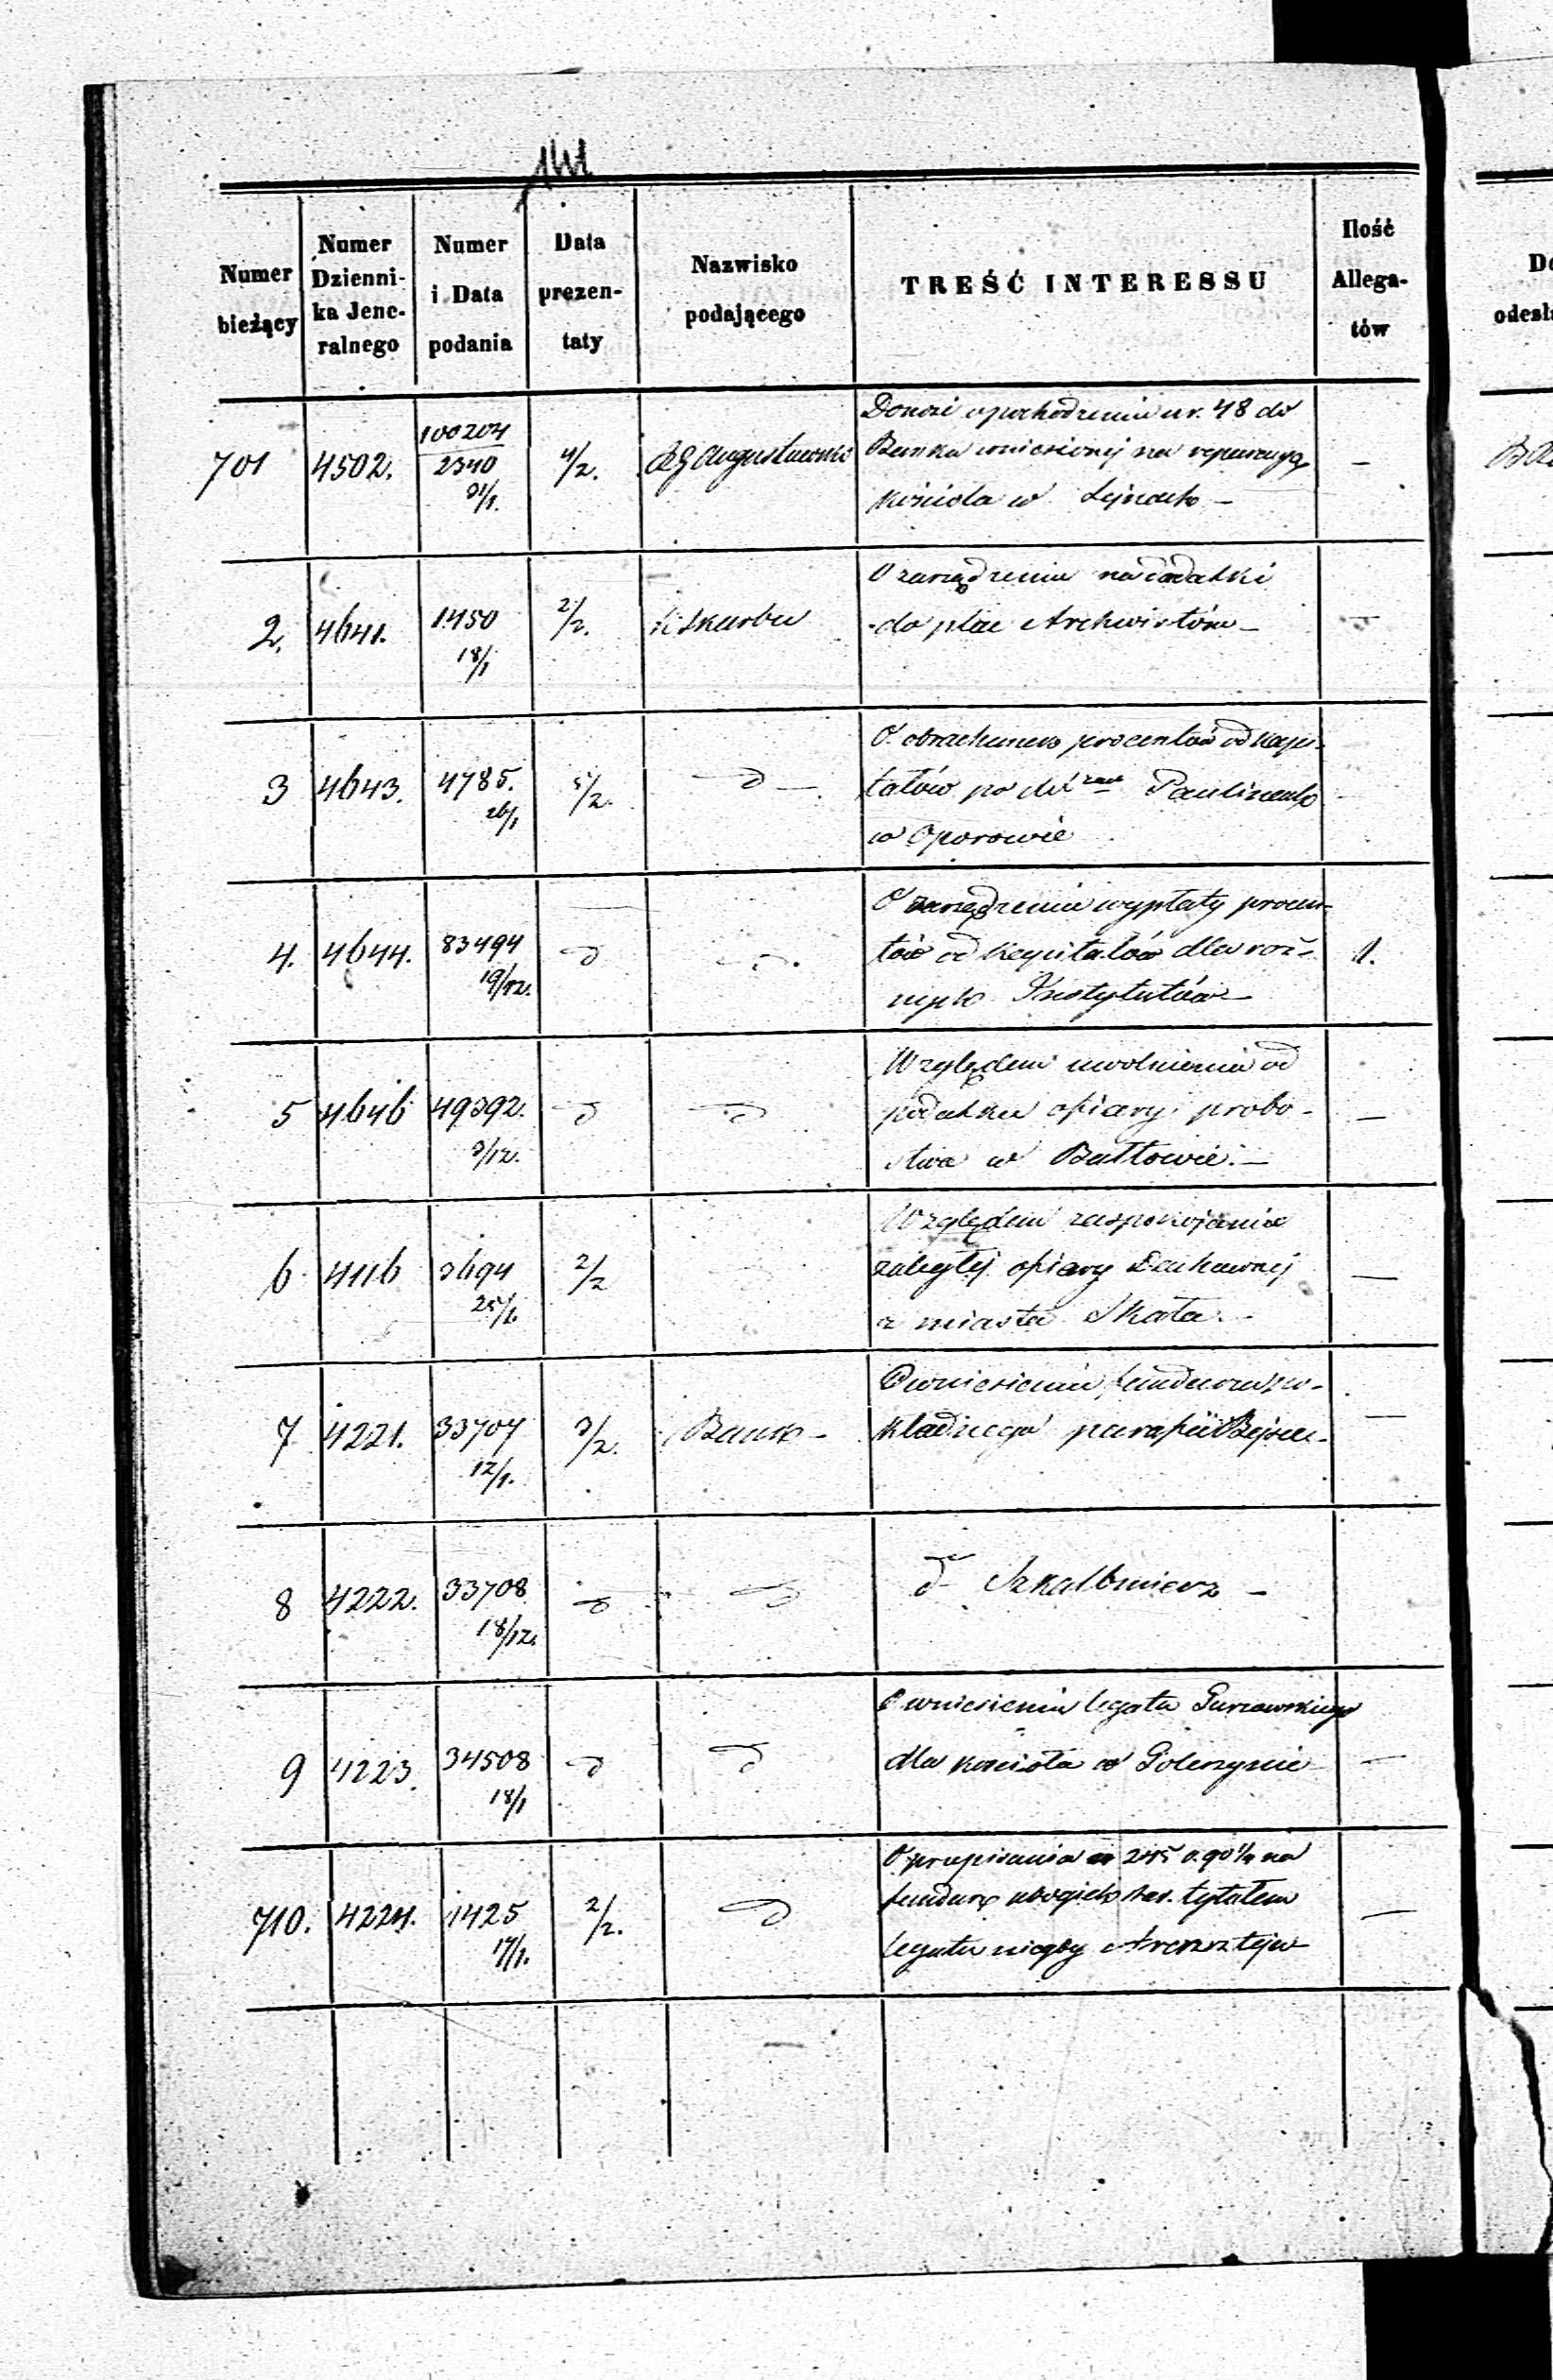 141
Numer bieżący | Numer Dziennika Jeneralnego | Numer i Data podania | Data prezentaty | Nazwisko podającego | TREŚĆ INTERESSU | Ilość Allegatów
701 4502. 100204/2340 31/1. 4/2. RG Augustowski Donosi o pochodzeniu nr. 48 do —
Banku wniesionej na reperacyą
kościoła w Sejnach —
2. 4641. 1450 18/1 2/2. K Skarbu O zarządzenie na dodatki —
do płac Archwistów —
3 4643. 4785. 26/1 5/2. d — O. obrachunek procentów od kapi-
tałów po Paulinach
w Oporowie
4. 4644. 83494 19/12. d O zarządzenie wypłaty procen- 1.
tów od kapitałów dla roż-
nych Instytutów —
5 4646 49392. 3/12. d d Względem uwolnienia od —
podatku ofiary probo-
stwa w Bałtowie. —
6 4116 3694 25/1. 2/2 Względem zaspokojenia —
zaległej ofiary Duchownej
z miasta Skała. —
7 4221. 33704 12/1. 3/2. Bank — O wniesieniu funduszu po- —
kładnego parafii Bejsce —
8 4222. 33708 18/12. d d d Skalbmierz —
9 4223. 34508 18/1 d d O wniesieniu legatu —
dla kościoła w
710. 4224. 1425 17/1. 2/2. d O przepisania 245 90½ na —
fundusz ubogich tytułem
legatu niegdy
Do
odesła